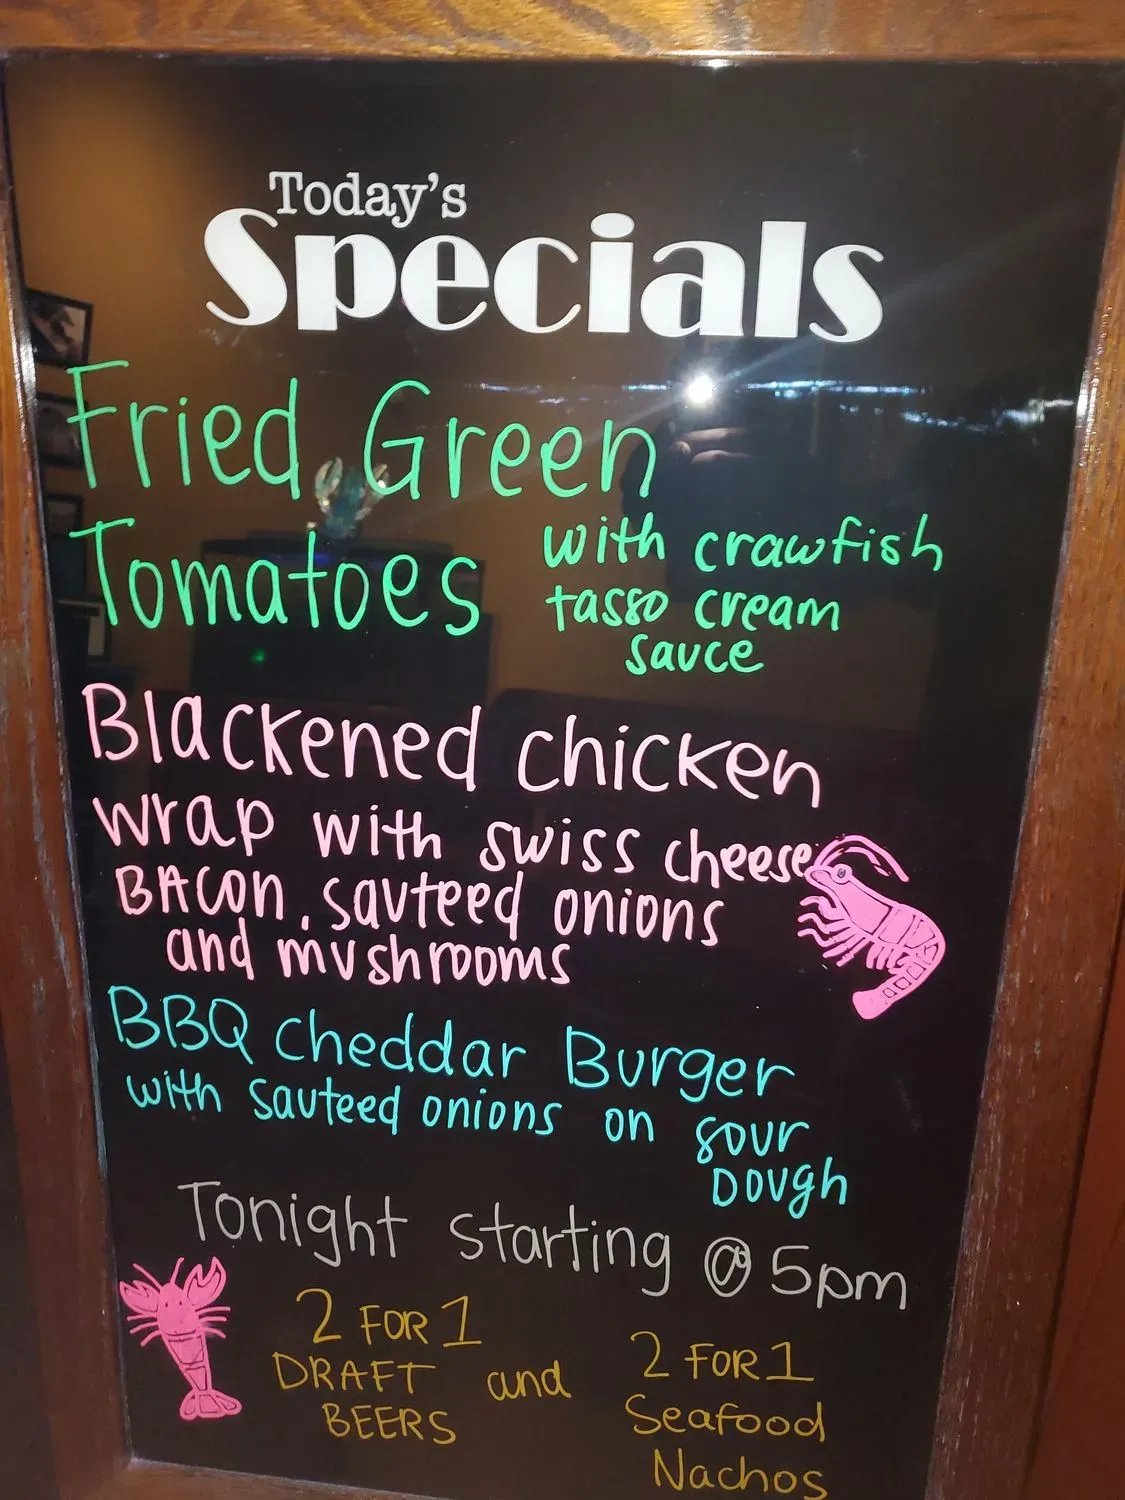 Today's
Specials
Fried Green
Tomatoes with crawfish
tasso cream
sauce
Blackened chicken
wrap with swiss cheese
BACON, sauteed onions
and mushrooms
BBQ cheddar Burger
with sauteed onions on sour
DOUGH
Tonight starting @ 5pm
2 FOR 1
DRAFT
BEERS
and
2 FOR 1
Seafood
Nachos